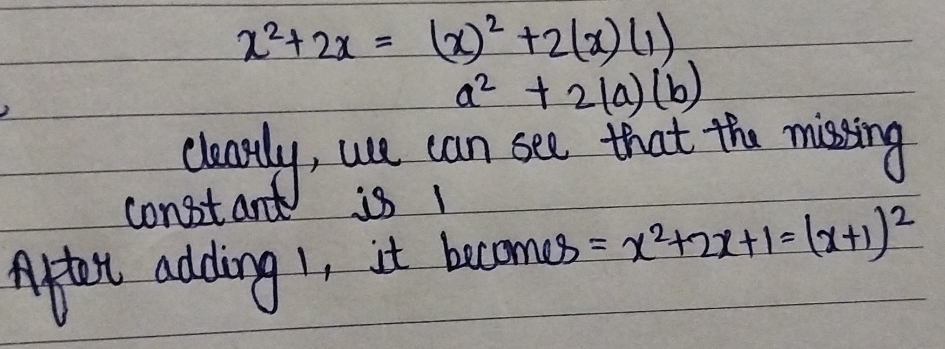 x²+2x = (x)² +2(x)(1)
a² + 2(a)(b)
Clearly, we can see that the missing
constant is 1
After adding 1, it becomes = x²+2x+1=(x+1)²